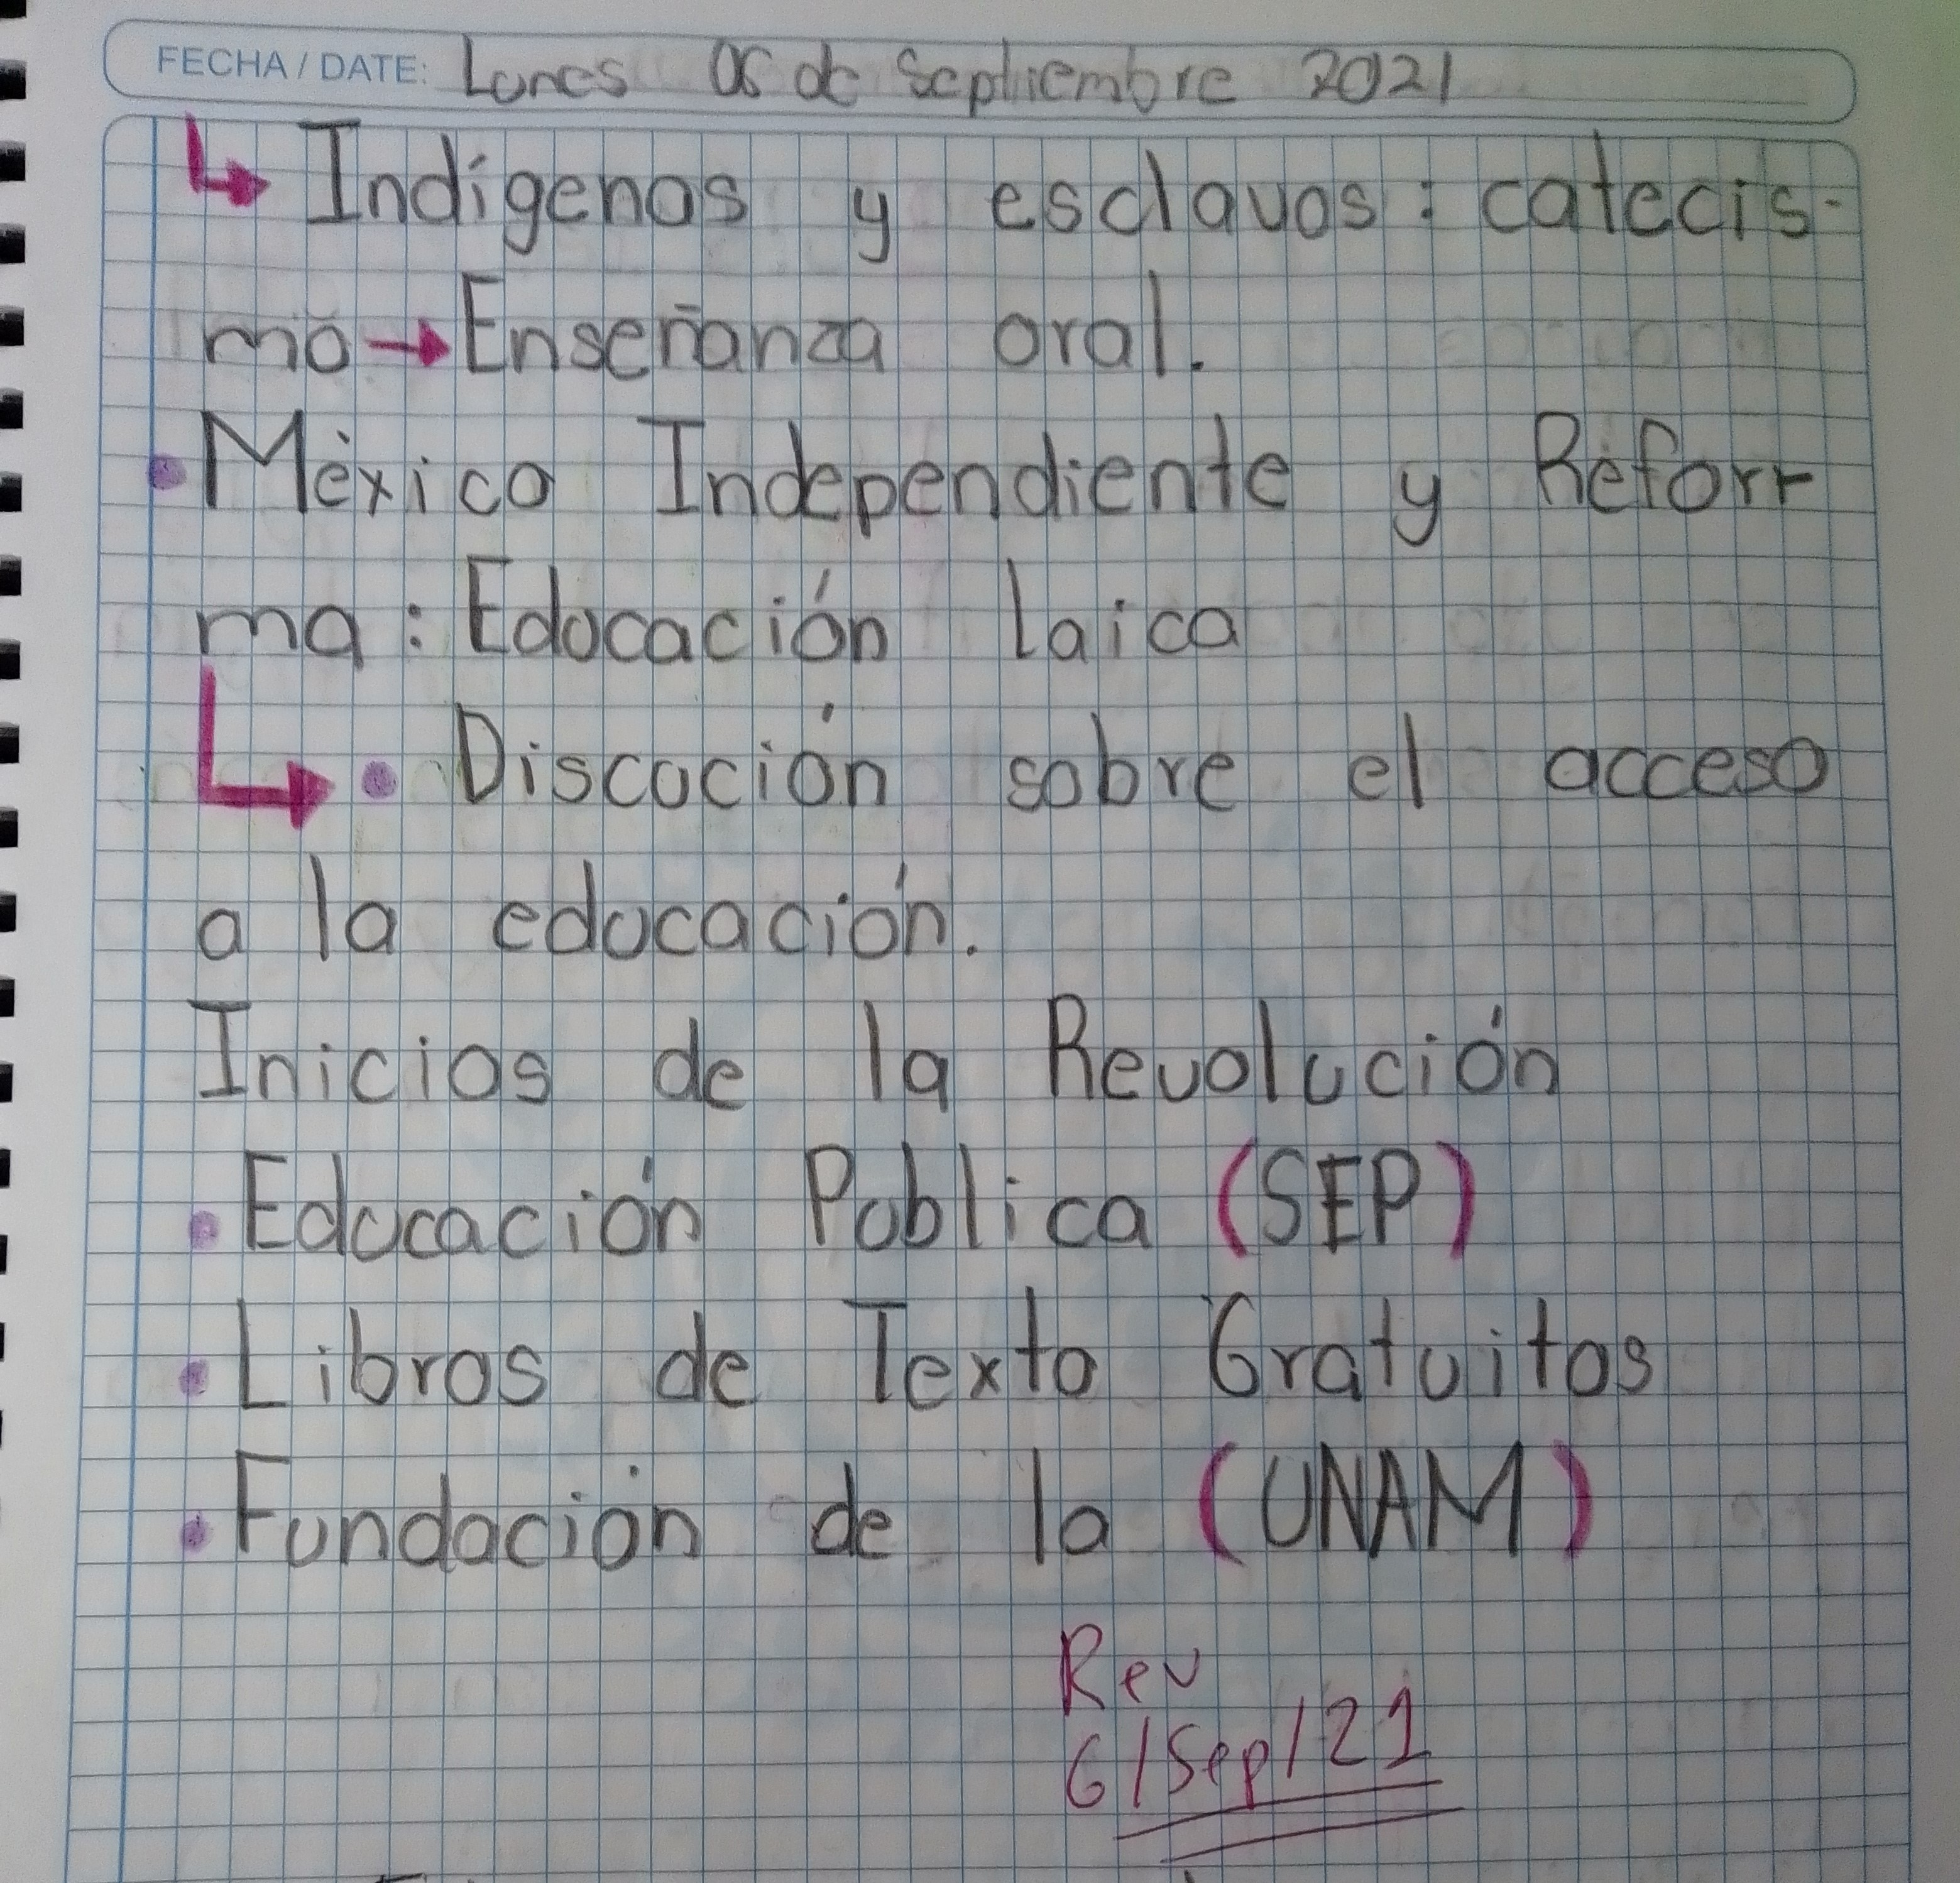 FECHA / DATE: Lunes 06 de Septiembre 2021
Indígenas y esclavos: catecis-
mo → Enseñanza oral.
• México Independiente y Refor-
ma: Educación laica
• Discución sobre el acceso
a la educación.
Inicios de la Revolución
• Educación Publica (SEP)
• Libros de Texto Gratuitos
• Fundación de la (UNAM)
Rev
6/Sep/21